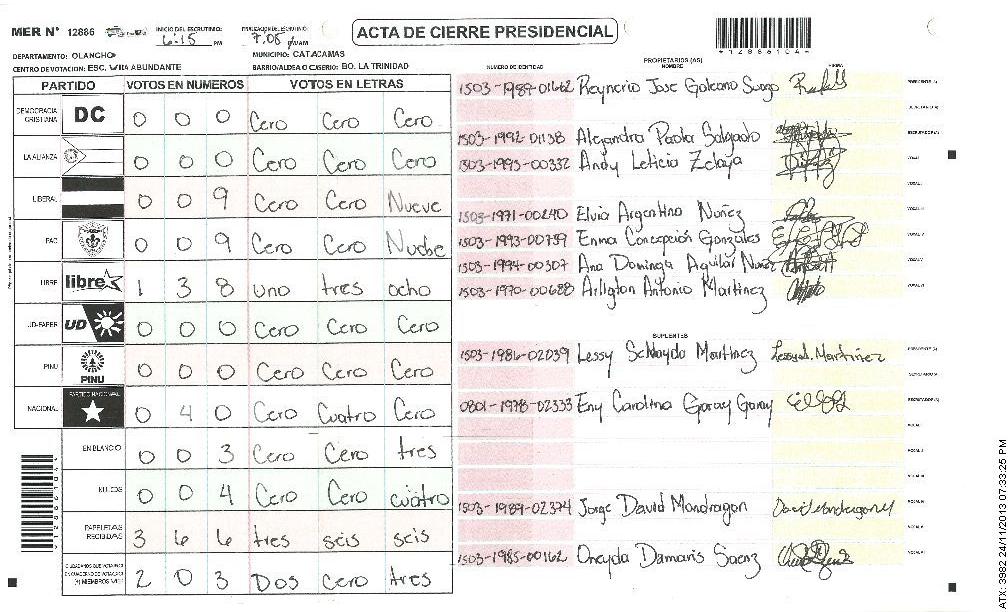 MER Nº 12886
INICIO DEL ESCRUTINIO: 6:15 PM
7:08
ACTA DE CIERRE PRESIDENCIAL
DEPARTAMENTO: OLANCHO
MUNICIPIO: CATACAMAS
CENTRO DE VOTACION: ESC. VILLA ABUNDANTE
BARRIO/ALDEA O CASERIO: BO. LA TRINIDAD
PARTIDO VOTOS EN NUMEROS VOTOS EN LETRAS
DEMOCRACIA CRISTIANA DC 0 0 0 Cero Cero Cero
LA ALIANZA 0 0 0 Cero Cero Cero
LIBERAL 0 0 9 Cero Cero Nueve
PAC 0 0 9 Cero Cero
LIBRE libre 1 3 8 uno tres ocho
UD-FAPER UD 0 0 0 Cero Cero Cero
PINU PINU 0 0 0 Cero Cero Cero
NACIONAL PARTIDO NACIONAL 0 4 0 Cero Cuatro Cero
EN BLANCO 0 0 3 Cero Cero tres
NULOS 0 0 4 Cero Cero cuatro
PAPELETAS RECIBIDAS 3 6 6 tres seis seis
2 0 3 Dos cero tres
NUMERO DE IDENTIDAD PROPIETARIOS (AS) NOMBRE FIRMA
1503-1989-01662 Reynerio Jose PRESIDENTE (A)
1503-1992-01138 Alejandra Paola Salgado
1503-1995-00332 Andy Leticia Zelaya
1503-1971-00240 Elvia Argentina Nuñez
1503-1993-00759 Enma Concepción Gonzales
1503-1994-00307 Ana Dominga Aguilar Nuñez
1503-1970-00688 Arlington Antonio Martinez
SUPLENTES
1503-1986-02039 Lessy Martinez
0801-1978-02333 Eny Carolina Garay Garay
1503-1989-02374 Jorge David Mondragon
1503-1985-00162 Oneyda Damaris Saenz
ATX: 3982 24/11/2013 07:33:25 PM